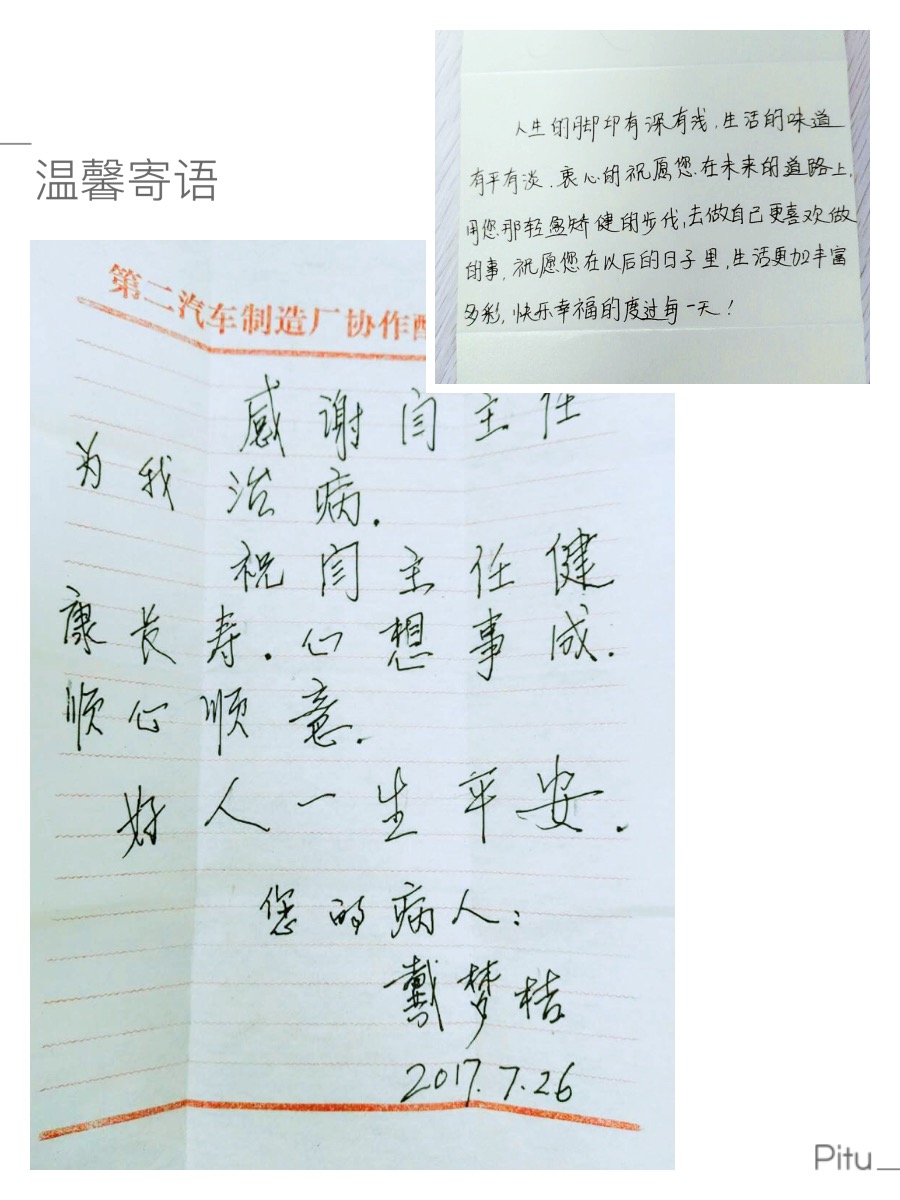 温馨寄语
人生的脚印有深有浅,生活的味道
有平有淡.衷心的祝愿您在未来的道路上,
用您那轻盈矫健的步伐,去做自己更喜欢做
的事,祝愿您在以后的日子里,生活更加丰富
多彩,快乐幸福的度过每一天!
第二汽车制造厂协作配
感谢闫主任
为我治病.
祝闫主任健
康长寿.心想事成.
顺心顺意.
好人一生平安.
您的病人:
戴梦桔
2017.7.26
Pitu